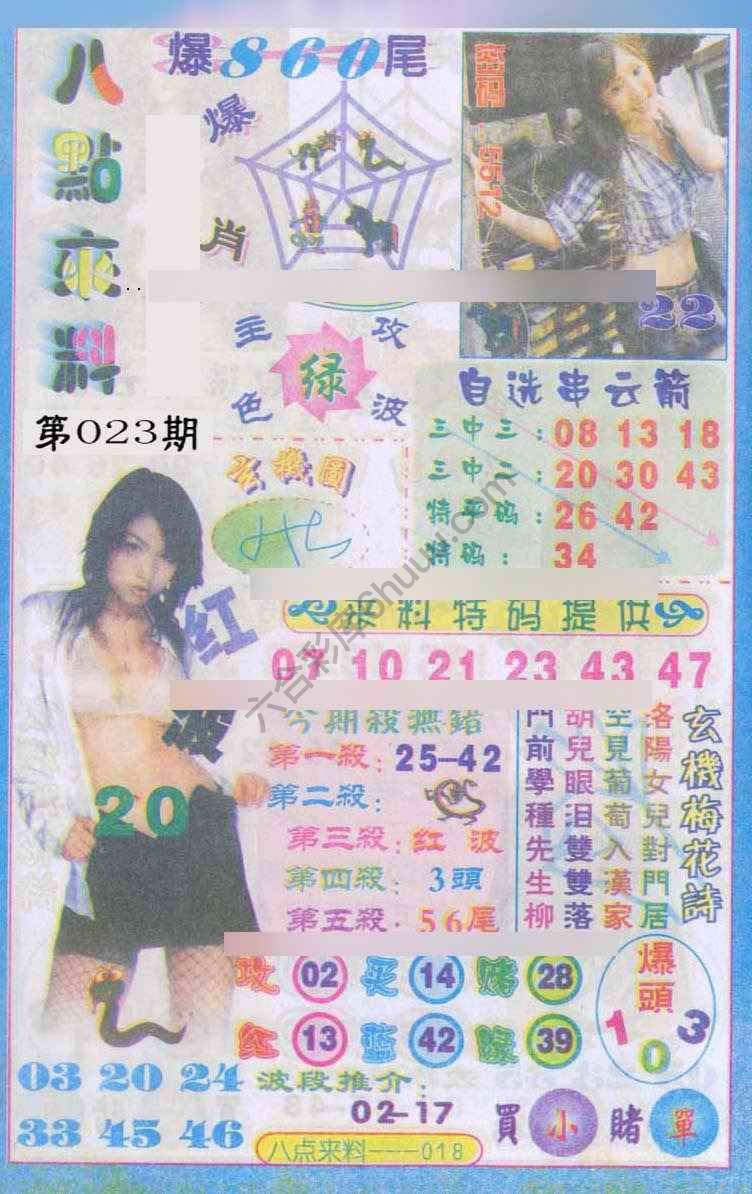 八點來料
爆860尾
爆肖
密码:5512
22
主攻
绿
色波
第023期
自选串云箭
三中三:08 13 18
三中二:20 30 43
特平码:26 42
特码:34
玄機圖
六合彩库6huuu.com
红波
20
来料特码提供
07 10 21 23 43 47
今期殺無錯
第一殺:25-42
第二殺:
第三殺:红波
第四殺:3頭
第五殺:56尾
玄機梅花詩
洛陽女兒對門居
空見葡萄入漢家
胡兒眼泪雙雙落
門前學種先生柳
攻02 买14 赌28
红13 蓝42 绿39
爆頭
1 0 3
03 20 24
33 45 46
波段推介:
02-17
買小賭單
八点来料---018